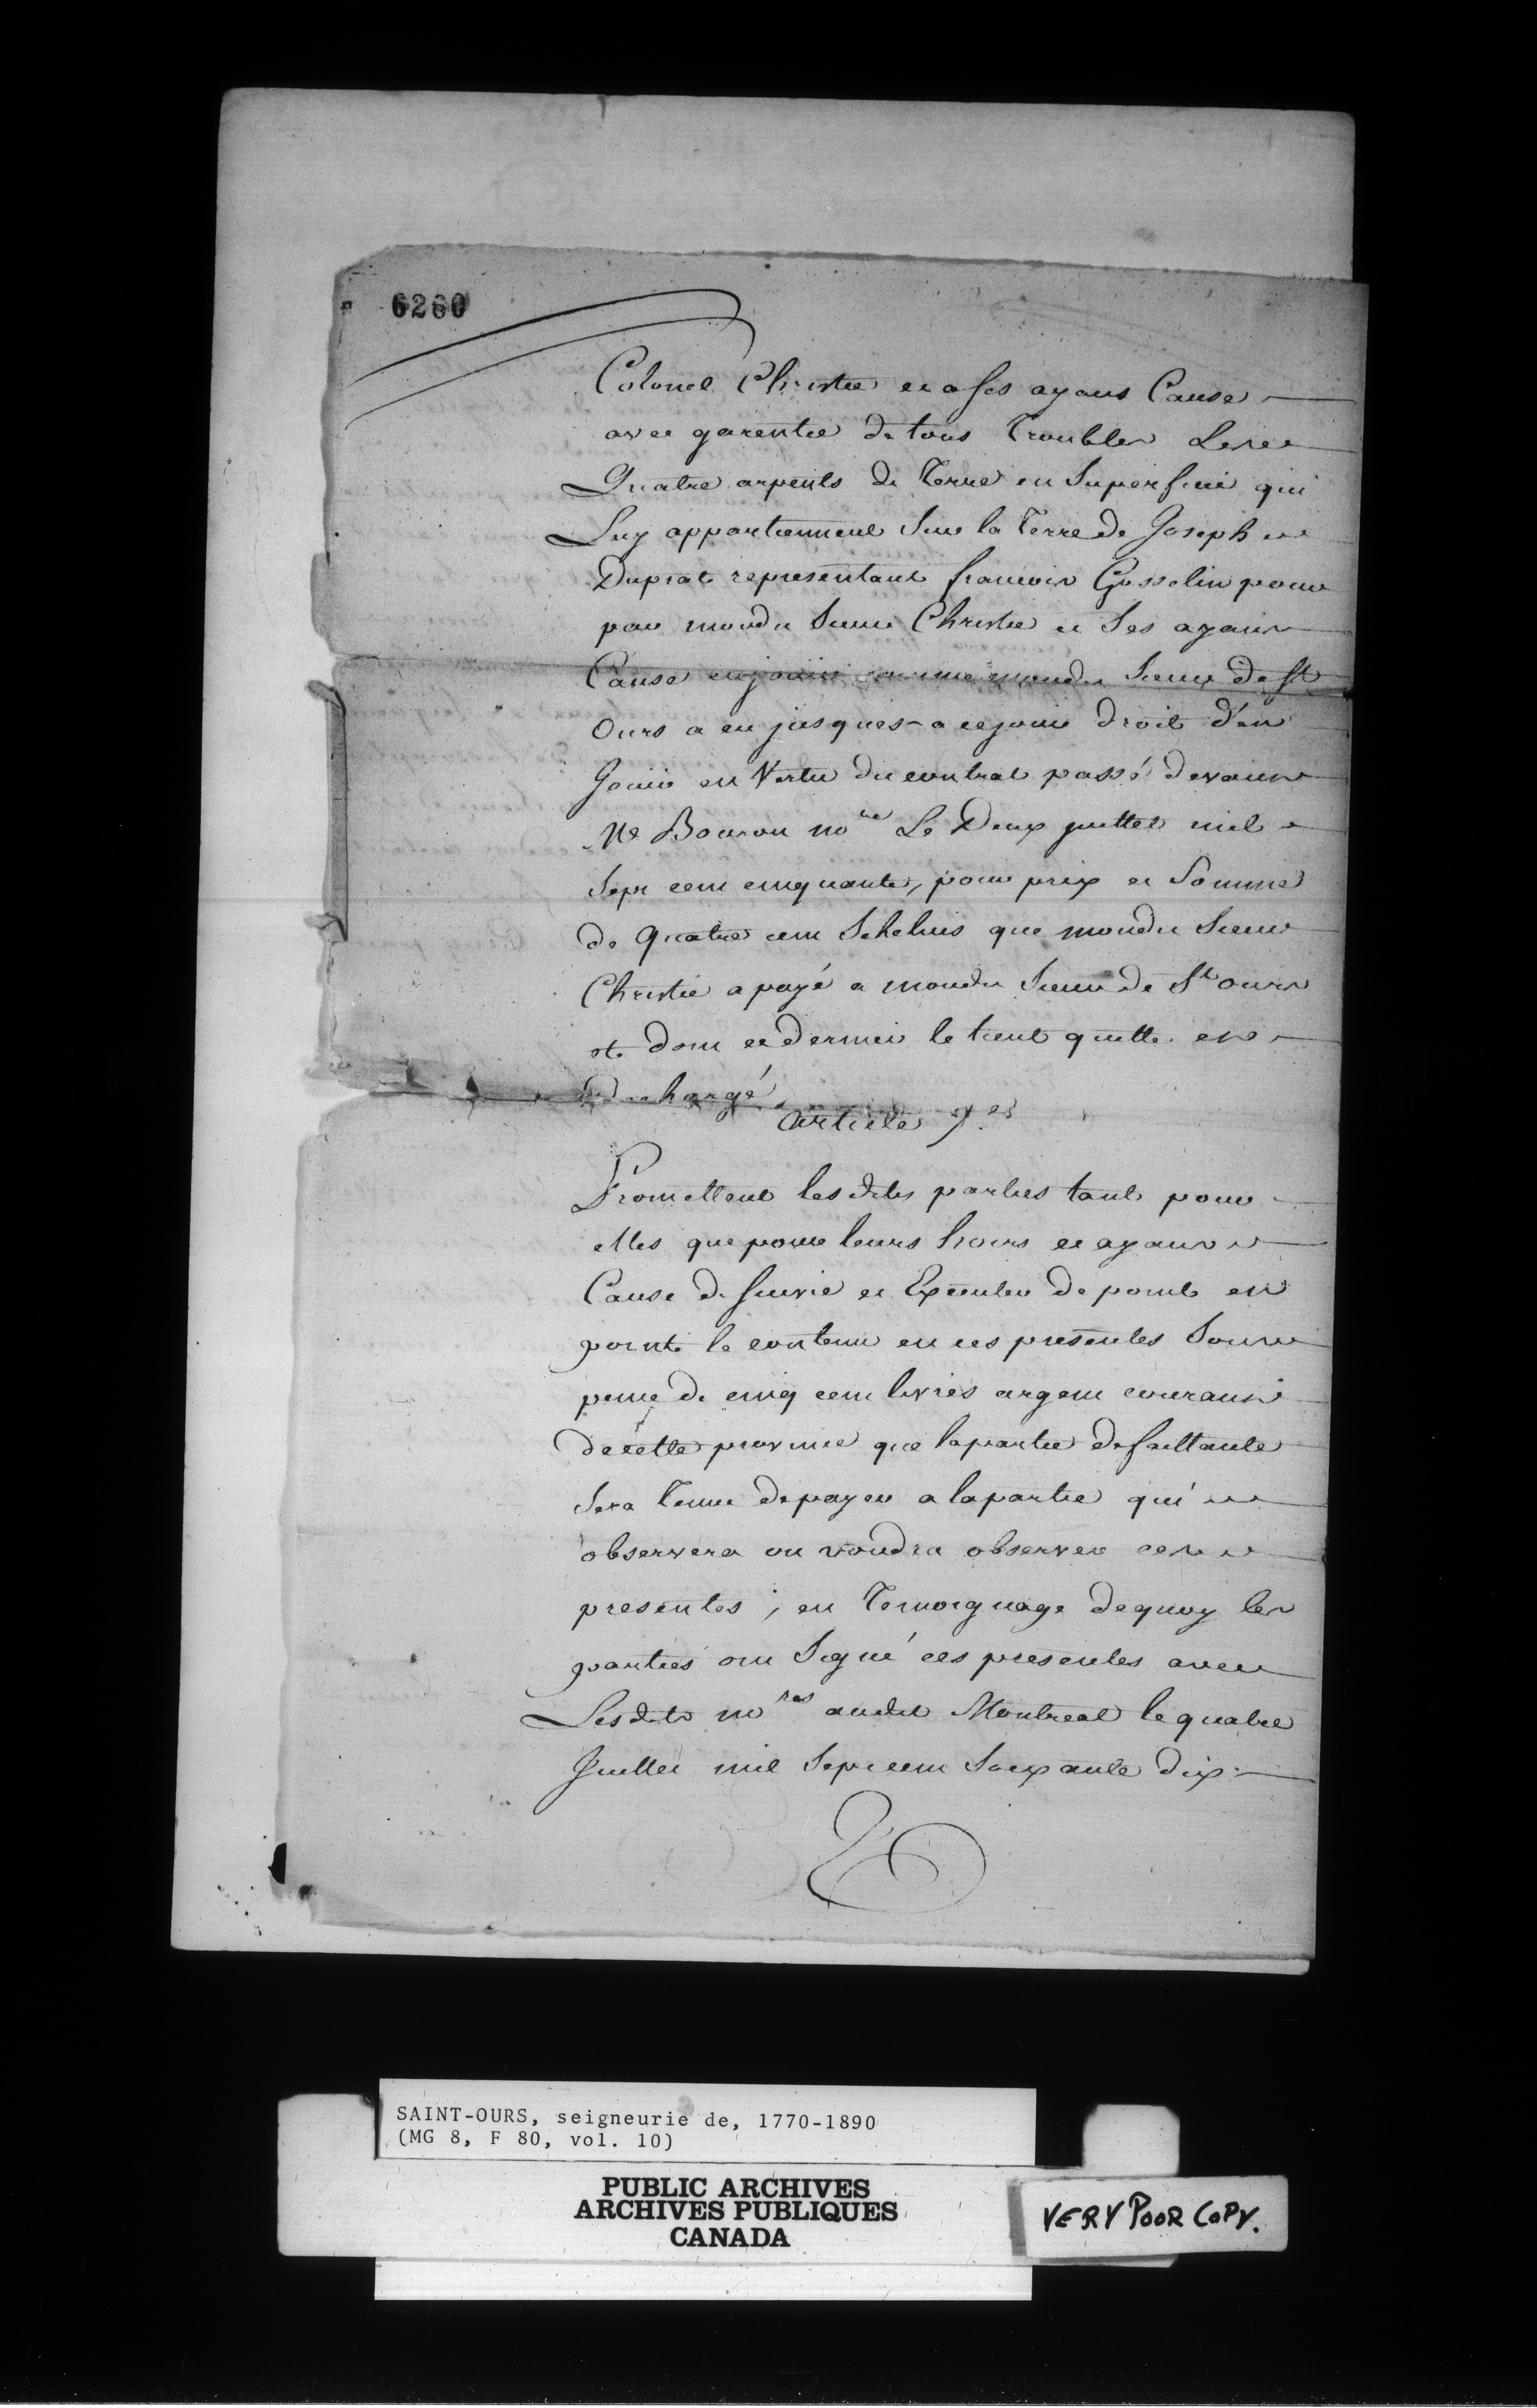 6260
Colonel Christie et a ses ayans Cause
avec garentie de tous Troubles Les
Quatre arpents de Terre en Superficie qui
Luy appartiennent Sur la Terre de Joseph
Duprat representant francois Gosselin pour
par mondit Sieur Christie et Ses ayans
Cause en jouir comme mondit Sieur de St
Ours a eu jusques a ce jour droit d'en
Jouir en Vertu du contrat passé devant
Me Bouron nore Le Deux juillet mil
Sept cent cinquante, pour prix et Somme
de quatre cent Schelins que mondit Sieur
Christie a payé a mondit Sieur de St ours
et dont ce dernier le tient quitte et
Dechargé,
Article 7.
Promettent les dites parties tant pour
elles que pour leurs hoirs et ayans
Cause de suivre et Executer de point en
point le contenu en ces presentes Sous
peine de cinq cent livres argent courant
de cette province que la partie defaillante
Sera Tenue de payer a la partie qui
observera ou voudra observer ces
presentes ; en Temoignage de quoy les
parties ont Signé ces presentes avec
Lesdits nores audit Montreal le quatre
Juillet mil Sept cent Soixante dix
SAINT-OURS, seigneurie de, 1770-1890
(MG 8, F 80, vol. 10)
PUBLIC ARCHIVES
ARCHIVES PUBLIQUES
CANADA
VERY POOR COPY.